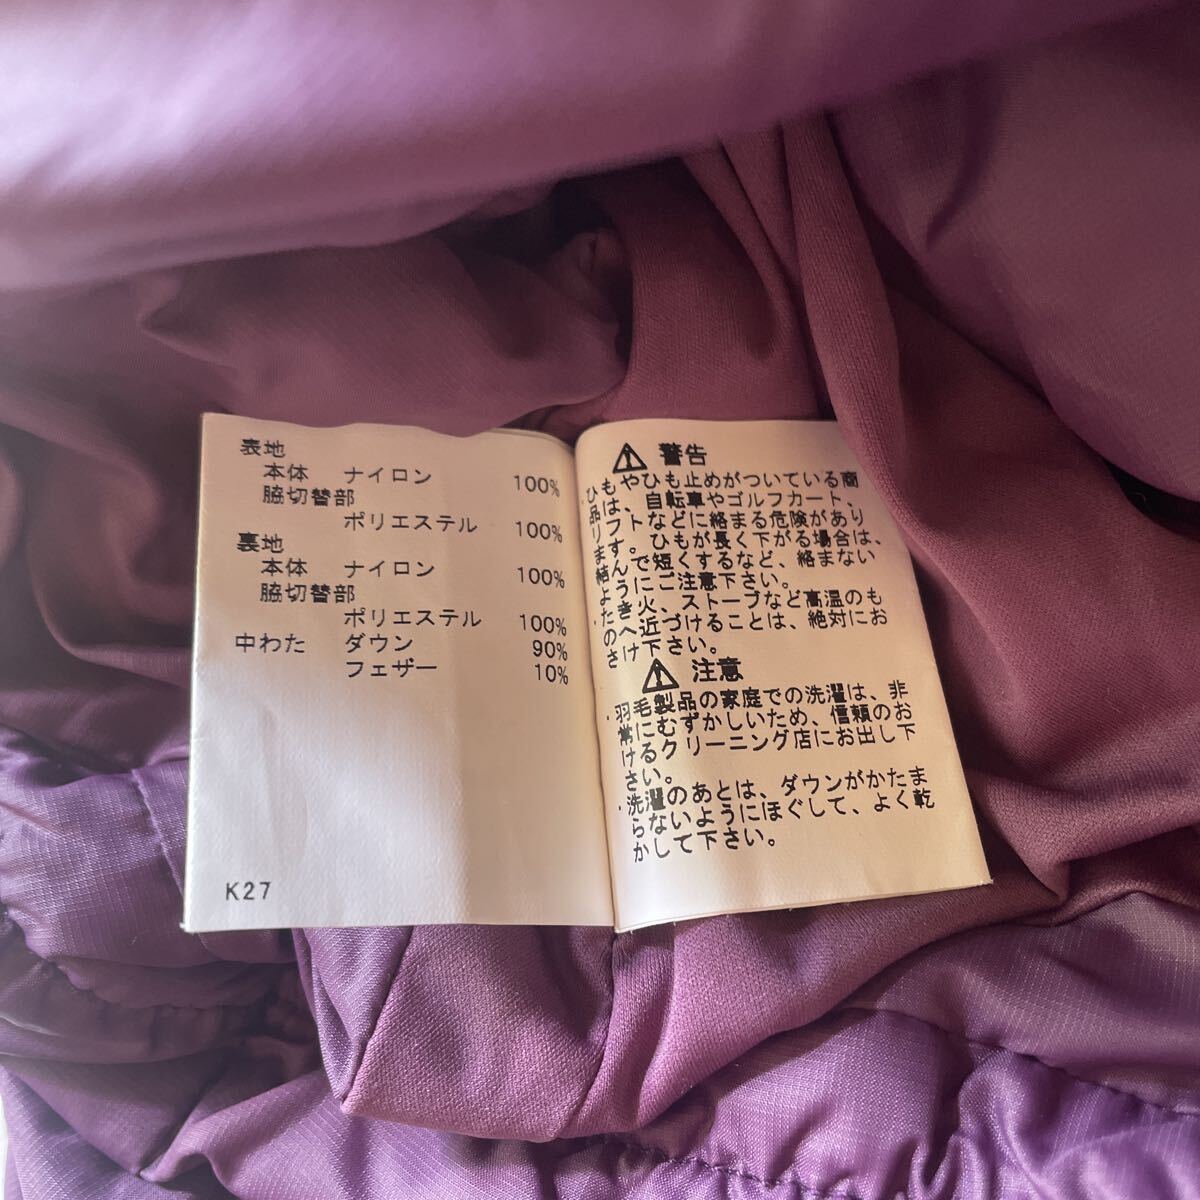 表地
本体 ナイロン 100%
脇切替部
ポリエステル 100%
裏地
本体 ナイロン 100%
脇切替部
ポリエステル 100%
中わた ダウン 90%
フェザー 10%
K27
警告
・ひもやひも止めがついている商
品は、自転車やゴルフカート、
リフトなどに絡まる危険があり
ます。ひもが長く下がる場合は、
結んで短くするなど、絡まない
ようにご注意下さい。
・たき火、ストーブなど高温のも
のへ近づけることは、絶対にお
さけ下さい。
注意
・羽毛製品の家庭での洗濯は、非
常にむずかしいため、信頼のお
けるクリーニング店にお出し下
さい。
・洗濯のあとは、ダウンがかたま
らないようにほぐして、よく乾
かして下さい。